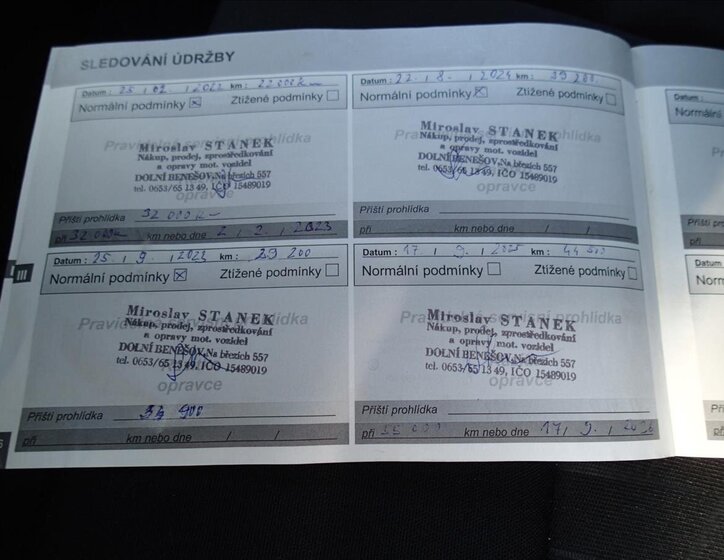 SLEDOVÁNÍ ÚDRŽBY
Datum: 25 / 02 / 2022 km: 22 000 km
Normální podmínky ☒ Ztížené podmínky ☐
Pravidelná servisní prohlídka
Miroslav STANEK
Nákup, prodej, zprostředkování
a opravy mot. vozidel
DOLNÍ BENEŠOV, Na březích 557
tel. 0653/65 13 49, IČO 15489019
opravce
Příští prohlídka 32 000 km
při 32 000 km km nebo dne 2. / 2. / 2023
Datum: 25 / 9 / 2023 km: 29 200
Normální podmínky ☒ Ztížené podmínky ☐
Miroslav STANEK
Nákup, prodej, zprostředkování
a opravy mot. vozidel
DOLNÍ BENEŠOV, Na březích 557
tel. 0653/65 13 49, IČO 15489019
opravce
Příští prohlídka 900
při km nebo dne / /
Datum: 22 / 8. / 2024 km: 39 200
Normální podmínky ☒ Ztížené podmínky ☐
Miroslav STANEK
Nákup, prodej, zprostředkování
a opravy mot. vozidel
DOLNÍ BENEŠOV, Na březích 557
tel. 0653/65 13 49, IČO 15489019
opravce
Příští prohlídka
při km nebo dne / /
Datum: 17 / 9. / 2025 km: 44
Normální podmínky ☐ Ztížené podmínky ☐
Miroslav STANEK
Nákup, prodej, zprostředkování
a opravy mot. vozidel
DOLNÍ BENEŠOV, Na březích 557
tel. 0653/65 13 49, IČO 15489019
opravce
Příští prohlídka
při km nebo dne 17 / 9. / 2026
III